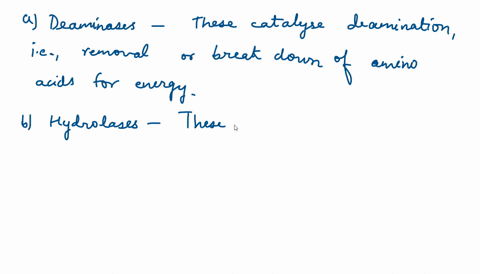 a) Deaminases – These catalyse deamination,
i.e., removal or break down of amino
acids for energy.
b) Hydrolases – These